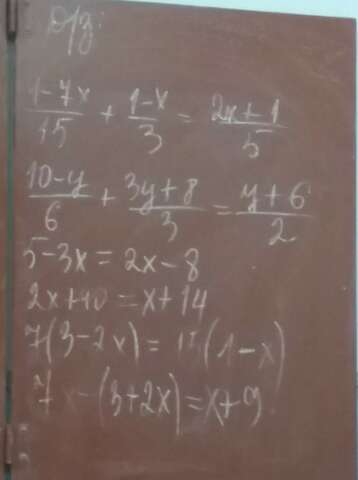 Д/з:
(1-7x)/15 + (1-x)/3 = (2x+1)/5
(10-y)/6 + (3y+8)/3 = (y+6)/2
5-3x = 2x-8
2x+10 = x+14
7(3-2x) = 15(1-x)
7x-(3+2x) = x+9